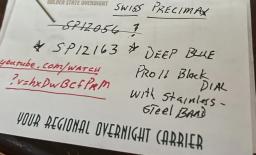 GOLDEN STATE OVERNIGHT
SWISS PRECIMAX
SP12056 ?
* SP12163 * DEEP BLUE
PRO II Black
DIAL
with Stainless-
Steel BAND
youtube.com/watch
?v=hxDwBcfPxM
YOUR REGIONAL OVERNIGHT CARRIER